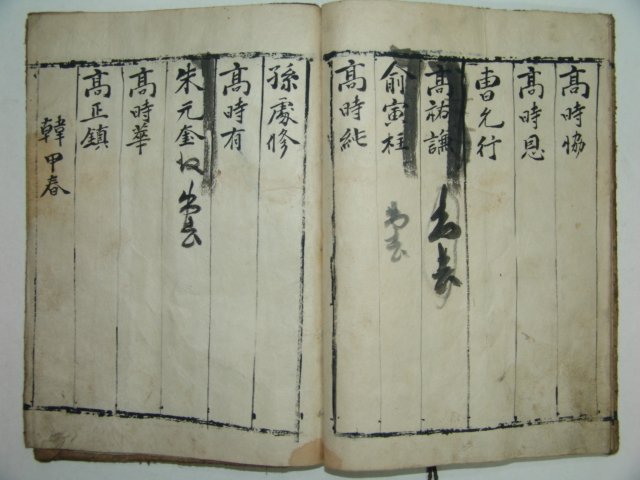 高時協
高時恩
曺允行
高祓謙
俞寅柱
高時純
孫處修
高時有
朱元奎
高時華
高正鎮
韓甲春